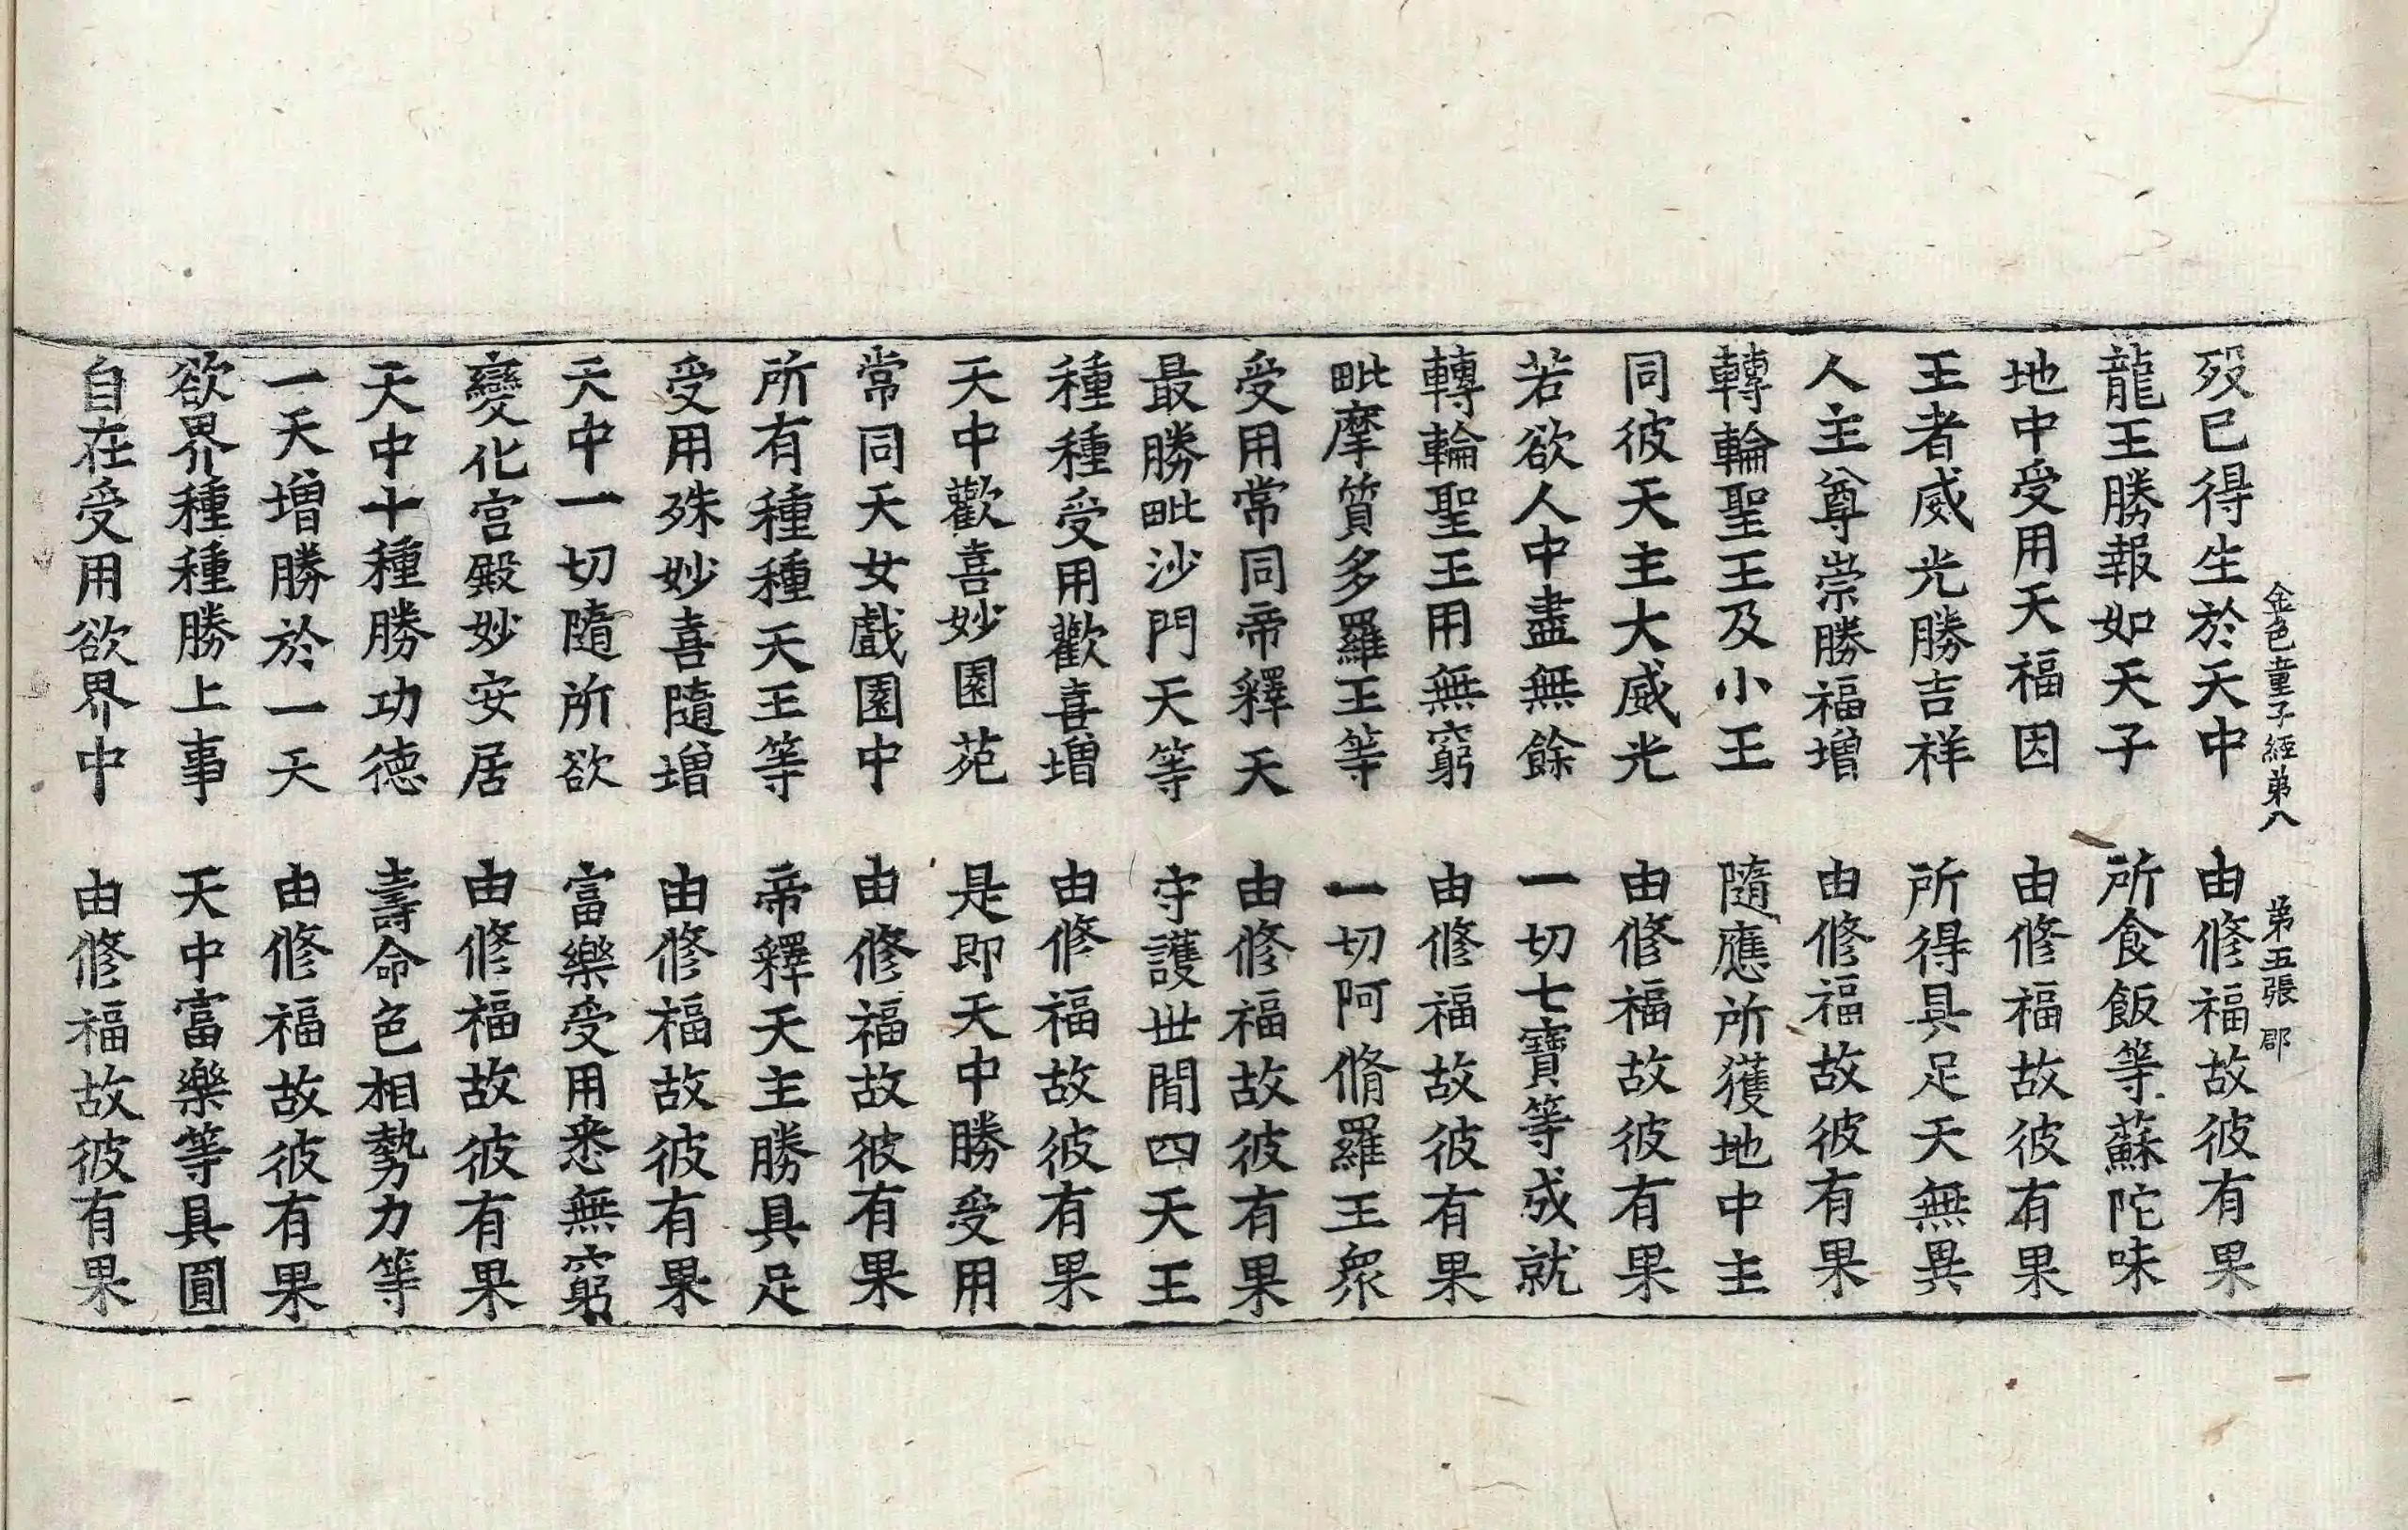 金色童子經第八　第五張　郡
歿已得生於天中　由修福故彼有果
龍王勝報如天子　所食飯等蘇陀味
地中受用天福因　由修福故彼有果
王者威光勝吉祥　所得具足天無異
人主尊崇勝福增　由修福故彼有果
轉輪聖王及小王　隨應所獲地中主
同彼天主大威光　由修福故彼有果
若欲人中盡無餘　一切七寶等成就
轉輪聖王用無窮　由修福故彼有果
毗摩質多羅王等　一切阿脩羅王衆
受用常同帝釋天　由修福故彼有果
最勝毗沙門天等　守護世間四天王
種種受用歡喜增　由修福故彼有果
天中歡喜妙園苑　是即天中勝受用
常同天女戲園中　由修福故彼有果
所有種種天王等　帝釋天主勝具足
受用殊妙喜隨增　由修福故彼有果
天中一切隨所欲　富樂受用悉無窮
變化宮殿妙安居　由修福故彼有果
天中十種勝功德　壽命色相勢力等
一天增勝於一天　由修福故彼有果
欲界種種勝上事　天中富樂等具圓
自在受用欲界中　由修福故彼有果